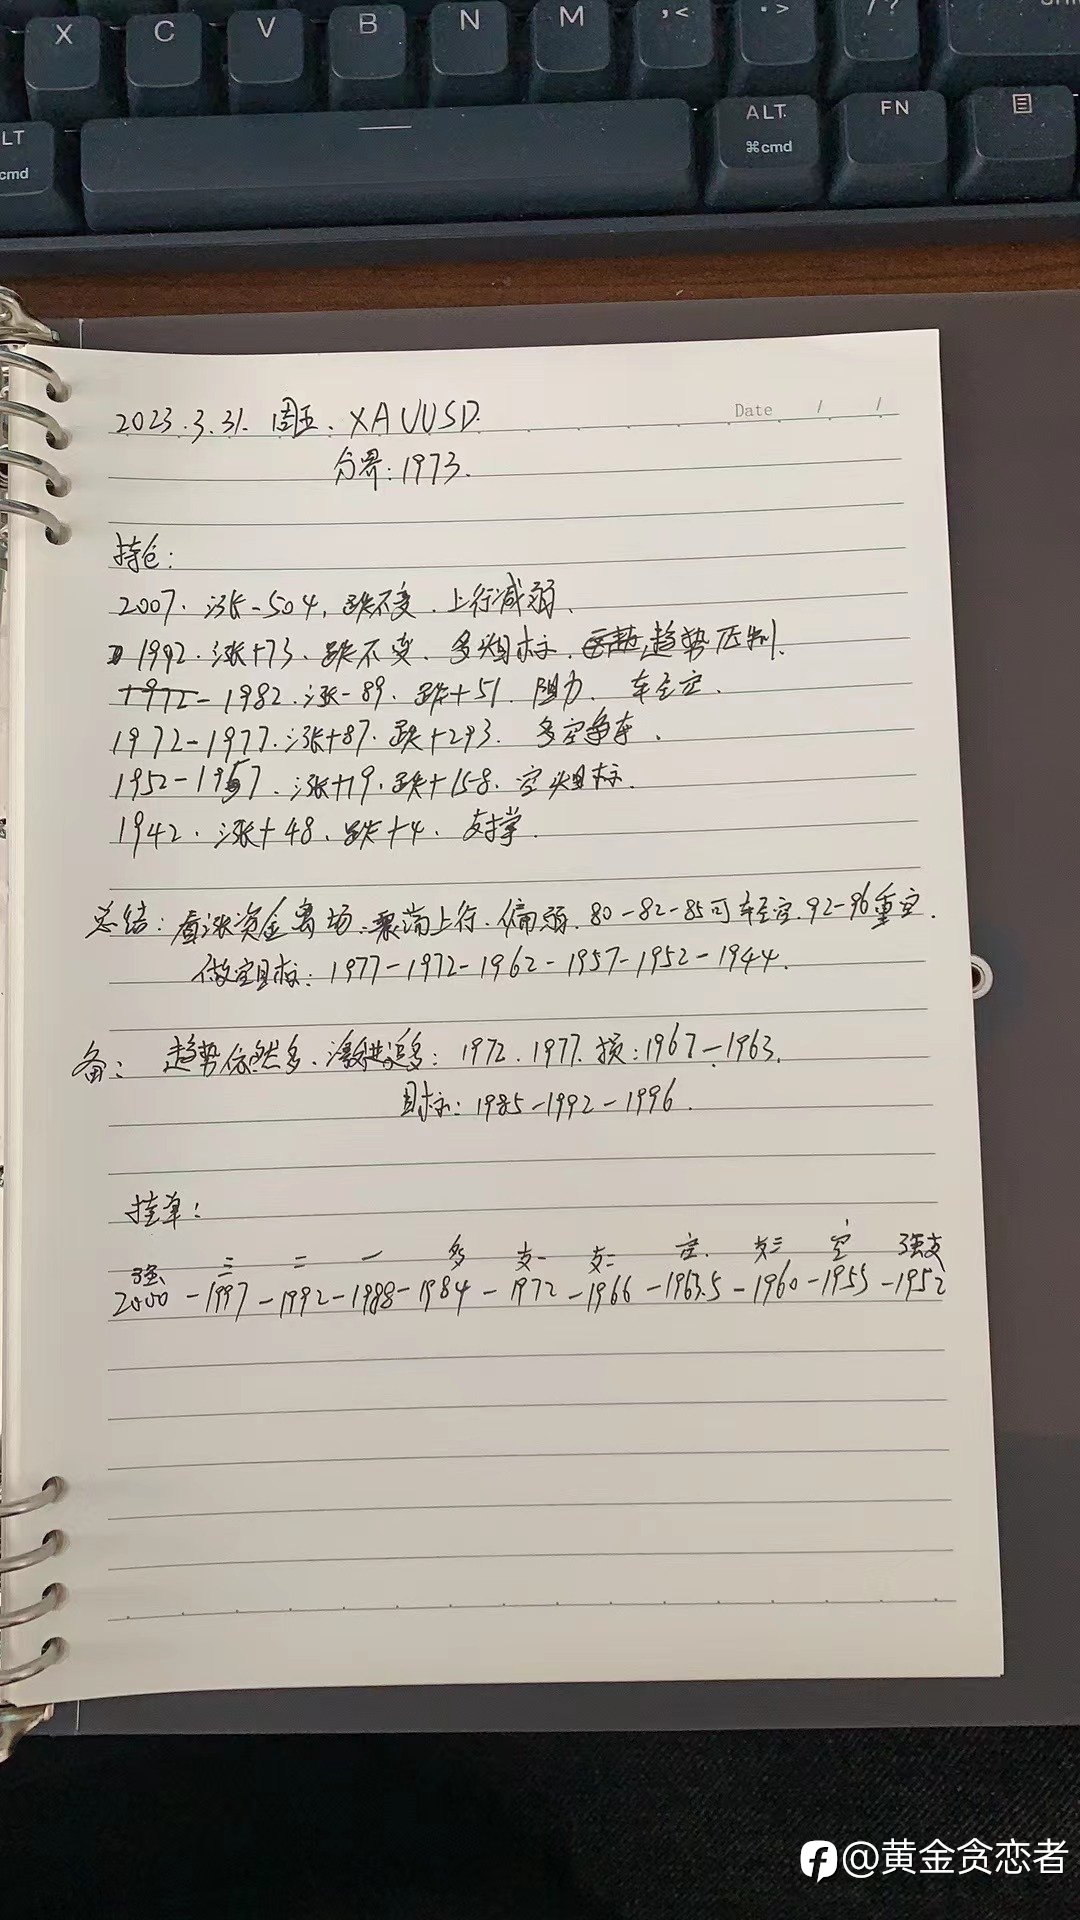 X C V B N M , < . > / ?
ALT ALT FN
cmd ⌘cmd
Date / /
2023.3.31. 周五. XAUUSD.
分界:1973.
持仓:
2007. 涨-504, 跌不变. 上行减弱.
1992. 涨+73. 跌不变. 多头目标. 趋势压制.
1982. 涨-89. 跌+51. 阻力. 轻空.
1972-1977. 涨+87. 跌+293. 多空争夺.
1952-1957. 涨+19. 跌+158. 空头目标.
1942. 涨+48. 跌+4. 支撑.
总结: 看涨资金离场. 震荡上行. 偏弱. 80-82-85可轻空. 92-96重空.
做空目标: 1977-1972-1962-1957-1952-1944.
备: 趋势依然多. 激进追多: 1972. 1977. 损: 1967-1963.
目标: 1985-1992-1996.
挂单:
强 三 二 一 多 支一 支二 空. 支三 空 强支
2000-1997-1992-1988-1984-1972-1966-1963.5-1960-1955-1952
@黄金贪恋者